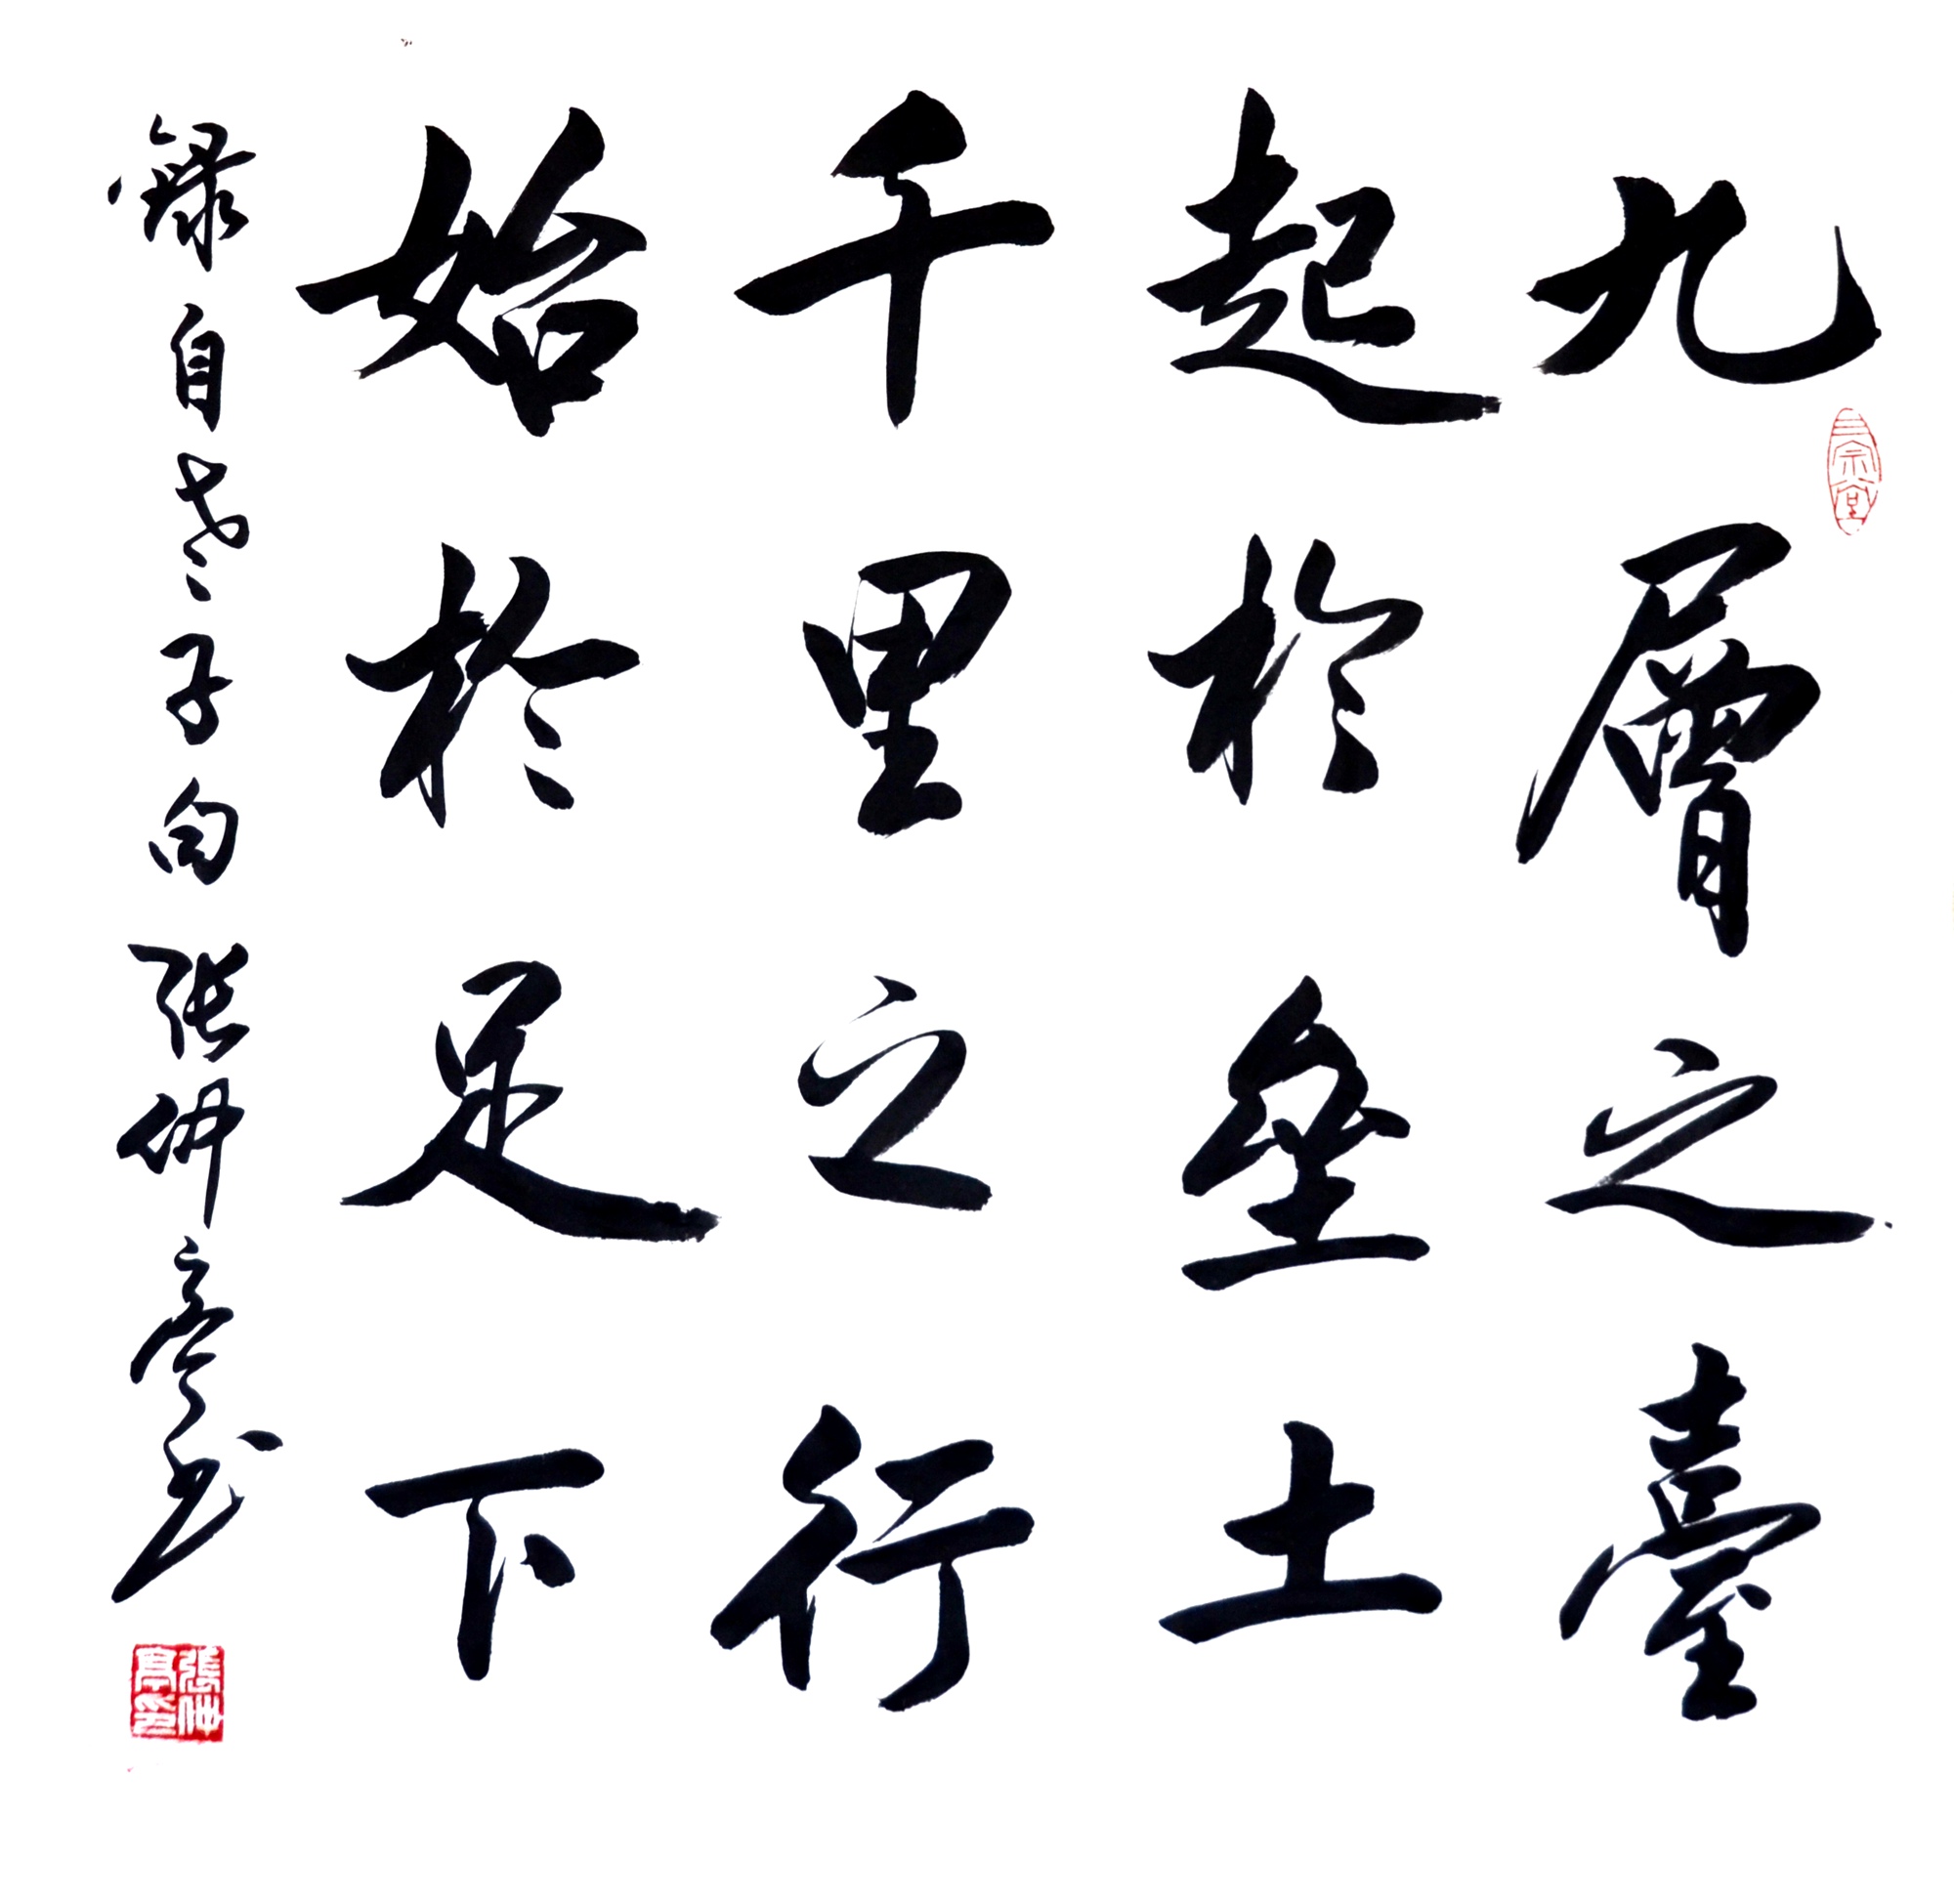 九層之臺
起於壘土
千里之行
始於足下
錄自老子句張仲亭書
三宗堂
張仲亭印